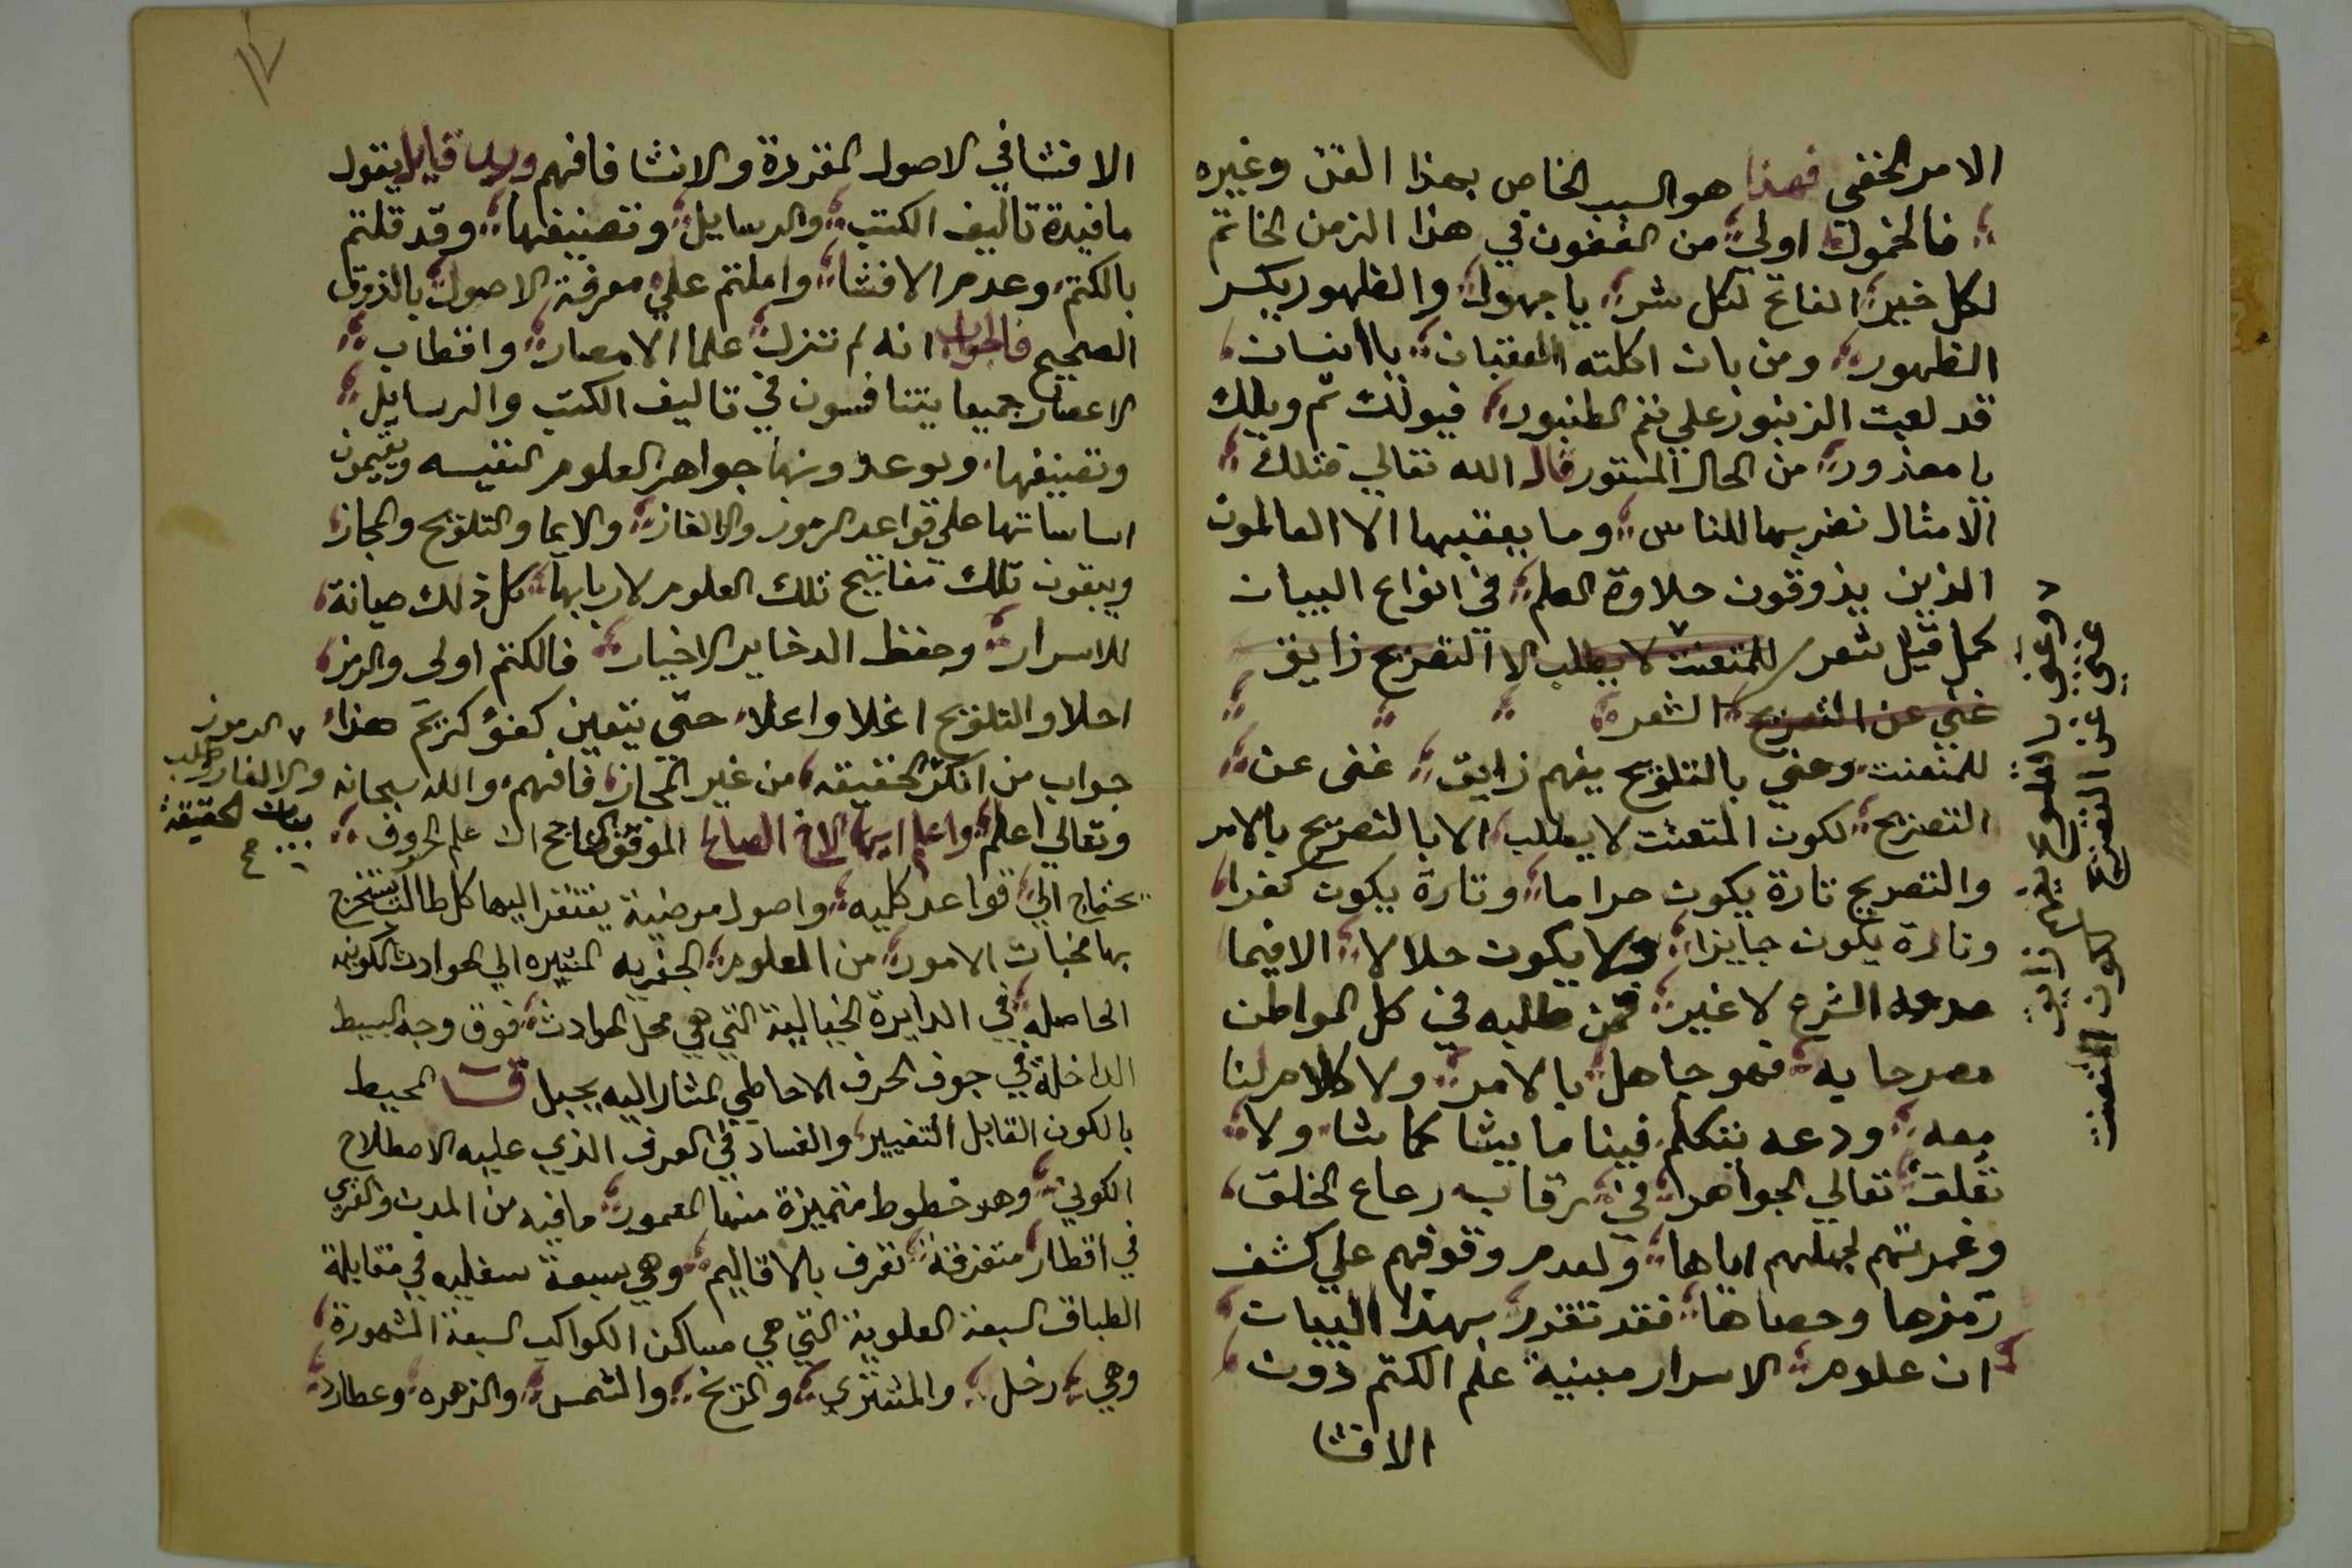 الامر الخفي فهذا هو السبب الخاص بهذا الفن وغيره
فالخمول اولى من الفنون في هذا الزمن الخاتم
لكل خير الفاتح لكل شر يا جهول والظهور يكسر
الظهور ومن بان اكلته العقبان يا انسان
قد لعبت الزنبور على نغم الطنبور فيولك ثم ويلك
يا معذور من الحال المستور قال الله تعالى فتلك
الامثال نضربها للناس وما يعقلها الا العالمون
الذين يذوقون حلاوة العلم في انواع البيان
كمل قيل شعر للمتعنت لا يطلب الا التصريح زايق
غني عن التصريح الشعره
للمتعنت وغني بالتلويح يفهم زايق غنى عن
التصريح لكون المتعنت لا يطلب الا بالتصريح بالامر
والتصريح تارة يكون حراما وتارة يكون كفرا
وتارة يكون جايزا ولا يكون حلالا الا فيما
الشرع لا غير فمن طلبه في كل المواطن
مصرحا به فهو جاهل بالامر ولا كلام لنا
معه ودعه يتكلم فينا ما يشا كما شا ولا
تعلق تعالى الجواهر في رقاب رعاع الخلق
وغمرتهم لجهلهم اياها ولعدم وقوفهم علي كشف
رمزها وحصاها فقد تقدم بهذا البيان
ان علوم الاسرار مبنية علم الكتم دون
الافشا
وغني بالتلويح يفهم زايق
غني عن التصريح لكون المتعنت
١٧
الافشا في الاصول المقررة والانشا فافهم ورب قايل يقول
ما فيدة تاليف الكتب والرسايل وتصنيفها وقد قلتم
بالكتم وعدم الافشا واملتم علي معرفة الاصول بالذوق
الصحيح فالجواب انه لم تنزل علما الامصار واقطاب
الاعصار جميعا يتنافسون في تاليف الكتب والرسايل
وتصنيفها ويوعدونها جواهر العلوم النفيسه ويقيمون
اساساتها علي قواعد الرموز والالغاز والايما والتلويح والمجاز
ويبقون تلك مفاتيح تلك العلوم لاربابها كل ذلك صيانة
للاسرار وحفظ الدخاير الاخيار فالكتم اولى والرمز
احلا والتلويح اغلا واعلا حتى يتعين كفؤ كريم هذا
جواب من انكر الحقيقه من غير المجاز فافهم والله سبحانه
وتعالي اعلم واعلم ايها الاخ الصالح الموفق الناجح ان علم الحروف
يحتاج الي قواعد كليه واصول مرضية يفتقر اليها كل طالب يستخرج
بها مخبات الامور من العلوم الجفريه المشيره الي الحوادث الكونيه
الحاصله في الدايرة الخيالية التي هي محل الحوادث فوق وجه البسيط
الداخلة في جوف الحرف الاحاطي المشار اليه بجبل ق المحيط
بالكون القابل التغيير والفساد في العرف الذي عليه الاصطلاح
الكوني وهو خطوط متميزة منها المعمور ما فيه من المدن والقرى
في اقطار متفرقة تعرف بالاقاليم وهي سبعة سفليه في مقابلة
الطباق السبعة العلوية التي هي مساكن الكواكب السبعة المشهورة
وهي زحل والمشتري والمريخ والشمس والزهره وعطارد
الرموز
والالغاز وطلب
بيان الحقيقة
صح